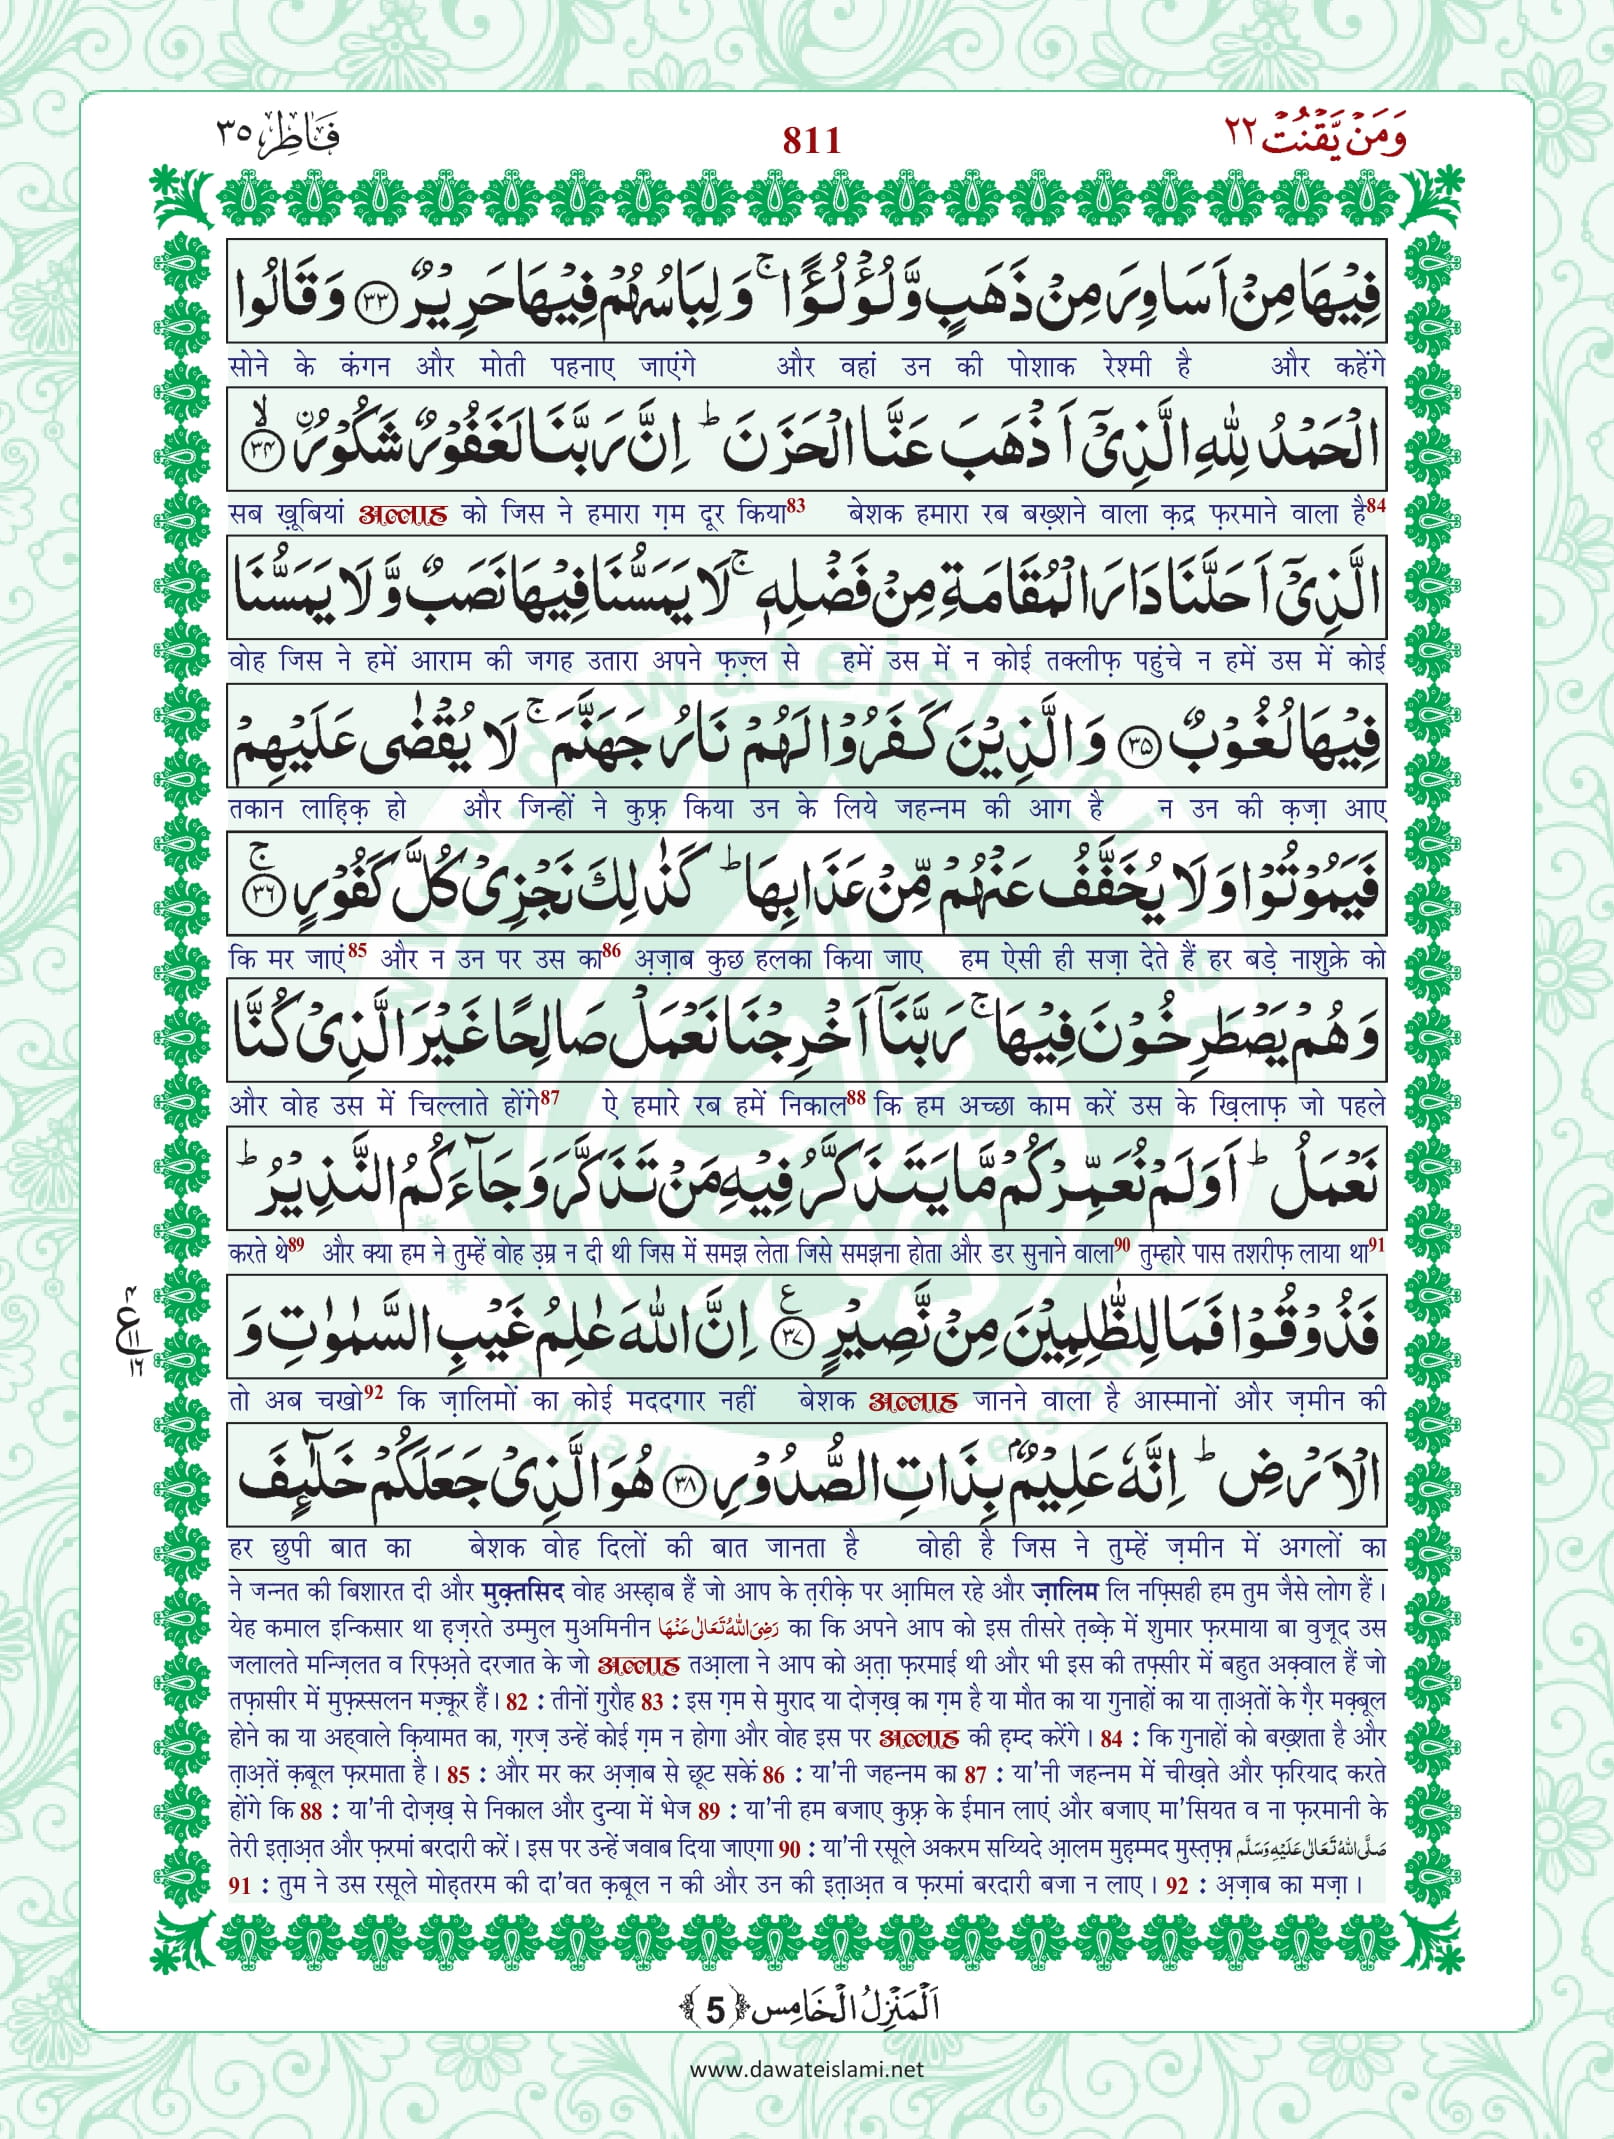 وَمَنْ يَّقْنُتْ ٢٢ 811 فَاطِر ٣٥
فِيْهَا مِنْ اَسَاوِرَ مِنْ ذَهَبٍ وَّ لُؤْلُؤًا ۚ وَ لِبَاسُهُمْ فِيْهَا حَرِيْرٌ ﴿۳۳﴾ وَ قَالُوا
सोने के कंगन और मोती पहनाए जाएंगे और वहां उन की पोशाक रेश्मी है और कहेंगे
الْحَمْدُ لِلّٰهِ الَّذِیْۤ اَذْهَبَ عَنَّا الْحَزَنَ ؕ اِنَّ رَبَّنَا لَغَفُوْرٌ شَكُوْرُ ۙ﴿۳۴﴾
सब ख़ूबियां अल्लाह को जिस ने हमारा ग़म दूर किया83 बेशक हमारा रब बख़्शने वाला क़द्र फ़रमाने वाला है84
الَّذِیْۤ اَحَلَّنَا دَارَ الْمُقَامَةِ مِنْ فَضْلِهٖ ۚ لَا یَمَسُّنَا فِیْهَا نَصَبٌ وَّ لَا یَمَسُّنَا
वोह जिस ने हमें आराम की जगह उतारा अपने फ़ज़्ल से हमें उस में न कोई तक्लीफ़ पहुंचे न हमें उस में कोई
فِیْهَا لُغُوْبٌ ﴿۳۵﴾ وَ الَّذِیْنَ كَفَرُوْا لَهُمْ نَارُ جَهَنَّمَ ۚ لَا یُقْضٰى عَلَیْهِمْ
तकान लाह़िक़ हो और जिन्हों ने कुफ़्र किया उन के लिये जहन्नम की आग है न उन की क़ज़ा आए
فَیَمُوْتُوْا وَ لَا یُخَفَّفُ عَنْهُمْ مِّنْ عَذَابِهَا ؕ كَذٰلِكَ نَجْزِیْ كُلَّ كَفُوْرٍ ۚ﴿۳۶﴾
कि मर जाएं85 और न उन पर उस का86 अ़ज़ाब कुछ हलका किया जाए हम ऐसी ही सज़ा देते हैं हर बड़े नाशुक्रे को
وَ هُمْ یَصْطَرِخُوْنَ فِیْهَا ۚ رَبَّنَاۤ اَخْرِجْنَا نَعْمَلْ صَالِحًا غَیْرَ الَّذِیْ كُنَّا
और वोह उस में चिल्लाते होंगे87 ऐ हमारे रब हमें निकाल88 कि हम अच्छा काम करें उस के ख़िलाफ़ जो पहले
نَعْمَلُ ؕ اَوَ لَمْ نُعَمِّرْكُمْ مَّا یَتَذَكَّرُ فِیْهِ مَنْ تَذَكَّرَ وَ جَآءَكُمُ النَّذِیْرُ ؕ
करते थे89 और क्या हम ने तुम्हें वोह उ़म्र न दी थी जिस में समझ लेता जिसे समझना होता और डर सुनाने वाला90 तुम्हारे पास तशरीफ़ लाया था91
فَذُوْقُوْا فَمَا لِلظّٰلِمِیْنَ مِنْ نَّصِیْرٍ ﴿۳۷﴾ اِنَّ اللّٰهَ عٰلِمُ غَیْبِ السَّمٰوٰتِ وَ
तो अब चखो92 कि ज़ालिमों का कोई मददगार नहीं बेशक अल्लाह जानने वाला है आस्मानों और ज़मीन की
الْاَرْضِ ؕ اِنَّهٗ عَلِیْمٌۢ بِذَاتِ الصُّدُوْرِ ﴿۳۸﴾ هُوَ الَّذِیْ جَعَلَكُمْ خَلٰٓىٕفَ
हर छुपी बात का बेशक वोह दिलों की बात जानता है वोही है जिस ने तुम्हें ज़मीन में अगलों का
ने जन्नत की बिशारत दी और मुक़्तसिद वोह अस्ह़ाब हैं जो आप के त़रीक़े पर आ़मिल रहे और ज़ालिम लि नफ़्सिही हम तुम जैसे लोग हैं।
येह कमाल इन्किसार था ह़ज़रते उम्मुल मुअमिनीन رَضِیَ اللّٰهُ تَعَالٰی عَنْهَا का कि अपने आप को इस तीसरे त़ब्क़े में शुमार फ़रमाया बा वुजूद उस
जलालते मन्ज़िलत व रिफ़्अ़ते दरजात के जो अल्लाह तआ़ला ने आप को अ़त़ा फ़रमाई थी और भी इस की तफ़्सीर में बहुत अक़्वाल हैं जो
तफ़ासीर में मुफ़स्सलन मज़्कूर हैं। 82 : तीनों गुरौह 83 : इस ग़म से मुराद या दोज़ख़ का ग़म है या मौत का या गुनाहों का या त़ाअ़तों के ग़ैर मक़्बूल
होने का या अह्वाले क़ियामत का, ग़रज़ उन्हें कोई ग़म न होगा और वोह इस पर अल्लाह की ह़म्द करेंगे। 84 : कि गुनाहों को बख़्शता है और
त़ाअ़तें क़बूल फ़रमाता है। 85 : और मर कर अ़ज़ाब से छूट सकें 86 : या'नी जहन्नम का 87 : या'नी जहन्नम में चीख़ते और फ़रियाद करते
होंगे कि 88 : या'नी दोज़ख़ से निकाल और दुन्या में भेज 89 : या'नी हम बजाए कुफ़्र के ईमान लाएं और बजाए मा'सियत व ना फ़रमानी के
तेरी इत़ाअ़त और फ़रमां बरदारी करें। इस पर उन्हें जवाब दिया जाएगा 90 : या'नी रसूले अकरम सय्यिदे आ़लम मुह़म्मद मुस्त़फ़ा صَلَّی اللّٰهُ تَعَالٰی عَلَیْهِ وَسَلَّم
91 : तुम ने उस रसूले मोह़तरम की दा'वत क़बूल न की और उन की इत़ाअ़त व फ़रमां बरदारी बजा न लाए। 92 : अ़ज़ाब का मज़ा।
اَلْمَنْزِلُ الْخَامِس ﴿5﴾
www.dawateislami.net